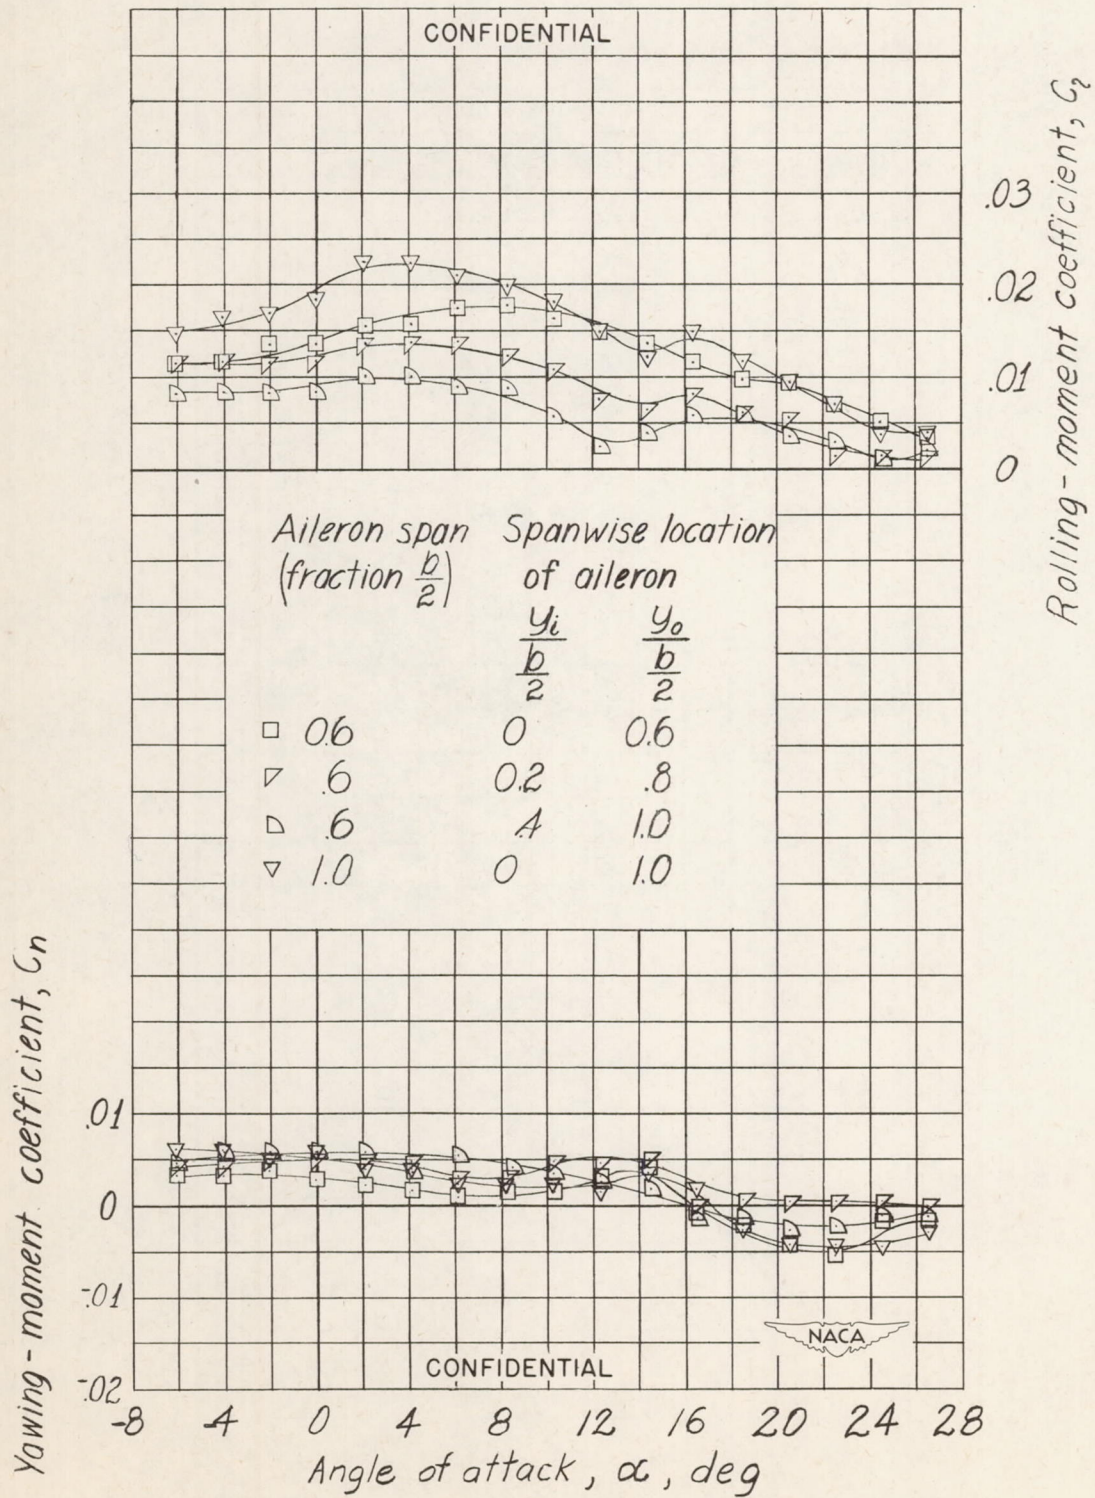 CONFIDENTIAL
.03
.02
.01
0
Rolling-moment coefficient, Cl
Aileron span Spanwise location
(fraction b/2) of aileron
yi/b/2 yo/b/2
0.6 0 0.6
.6 0.2 .8
.6 .4 1.0
1.0 0 1.0
Yawing-moment coefficient, Cn
.01
0
-.01
-.02
NACA
CONFIDENTIAL
-8 -4 0 4 8 12 16 20 24 28
Angle of attack, α, deg